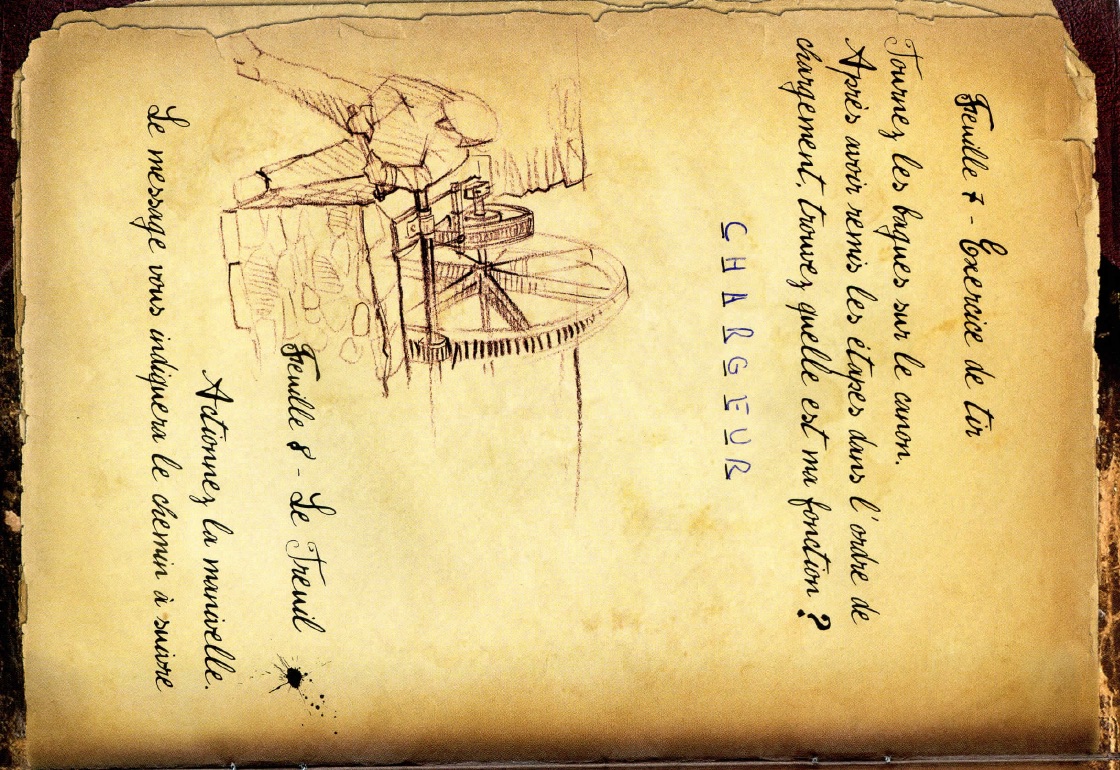 Feuille 7 - Exercice de tir
Tournez les bagues sur le canon.
Après avoir remis les étapes dans l'ordre de
chargement, trouvez quelle est ma fonction ?
CHARGEUR
Feuille 8 - Le Treuil
Actionnez la manivelle.
Le message vous indiquera le chemin à suivre